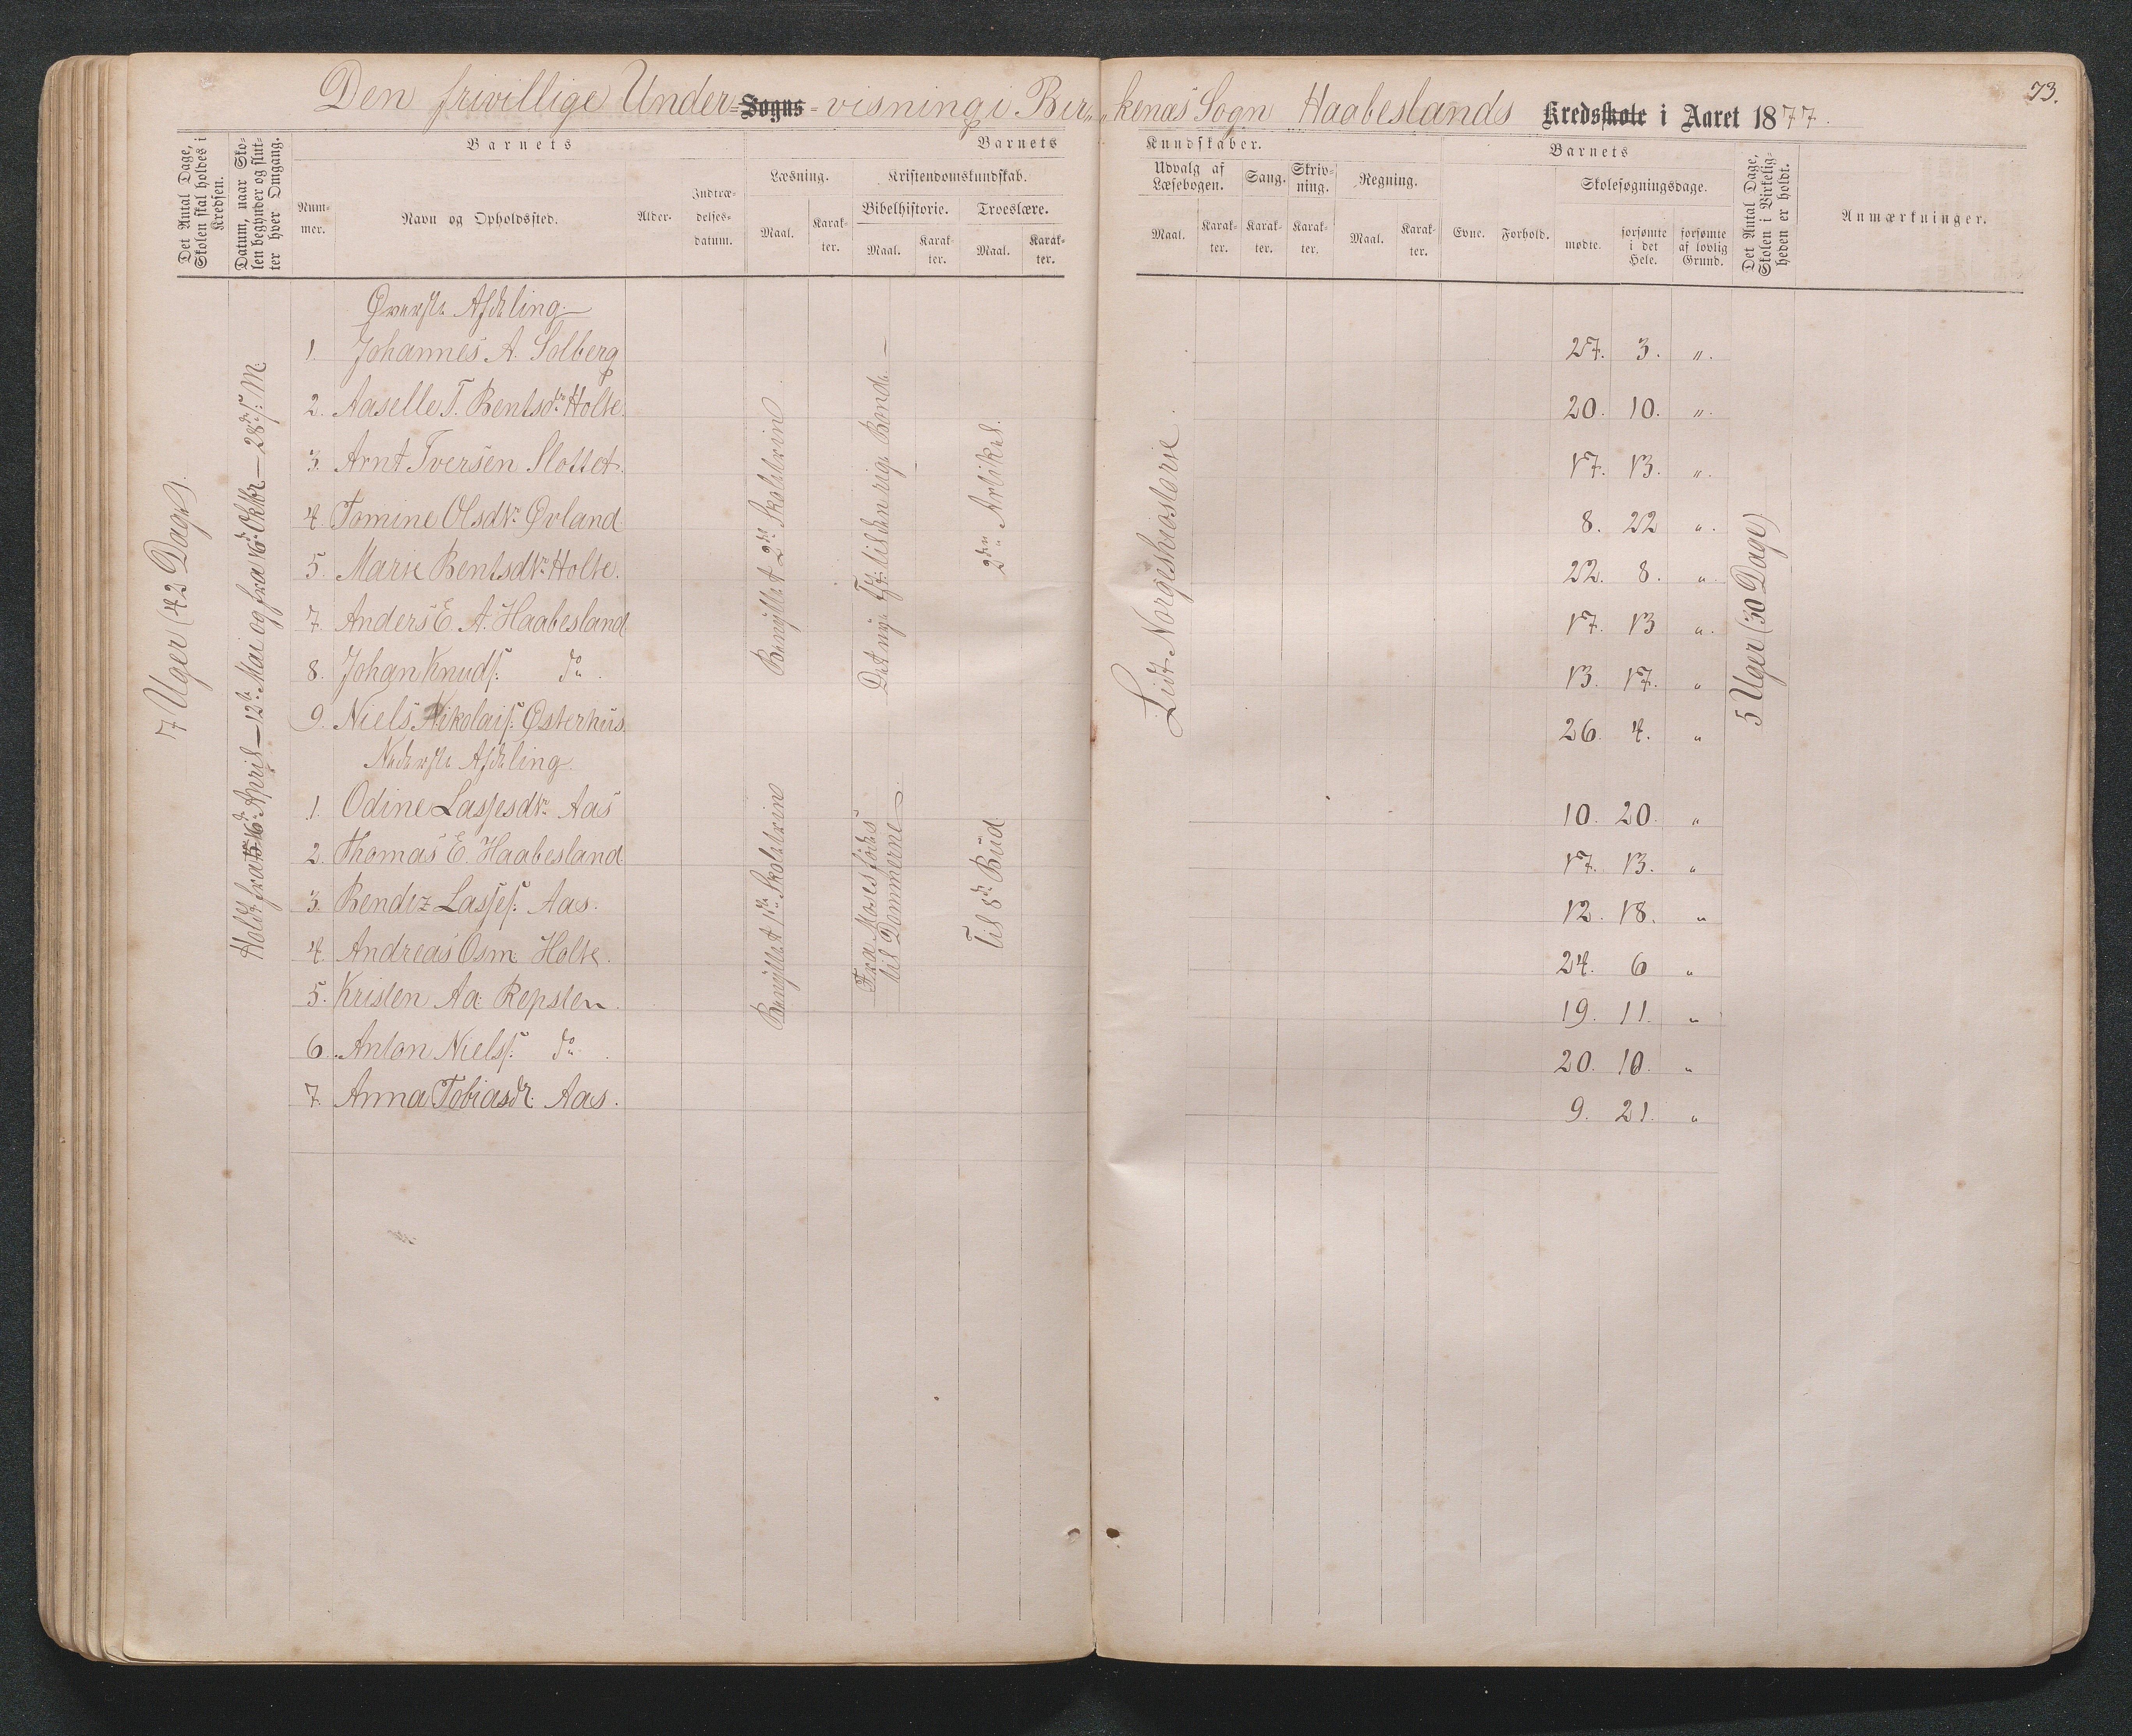 73.
Den frivillige Under= Sogns =visning i Bir„ „kenæs Sogn Haabeslands Kredsskole i Aaret 1877.
Det Antal Dage, Skolen skal holdes i Kredsen.
Datum, naar Skolen begynder og slutter hver Omgang.
Barnets
Nummer.
Navn og Opholdssted.
Alder.
Indtrædelsesdatum.
Barnets
Læsning.
Maal.
Karakter.
Kristendomskundskab.
Bibelhistorie.
Maal.
Karakter.
Troeslære.
Maal.
Karakter.
Kundskaber.
Udvalg af Læsebogen.
Maal.
Karakter.
Sang.
Karakter.
Skrivning.
Karakter.
Regning.
Maal.
Karakter.
Barnets
Evne.
Forhold.
Skolesøgningsdage.
mødte.
forsømte i det Hele.
forsømte af lovlig Grund.
Det Antal Dage, Skolen i Virkeligheden er holdt.
Anmærkninger.
7 Uger (42 Dage).
Holdt fra 16de April – 12te Mai og fra 16de Oktbr – 28de s. M.
Øverste Afdeling.
1. Johannes A. Solberg 27. 3. „.
2. Aaselle T. Bentsdtr Holte. 20. 10. „.
3. Arnt Iversen Slottet. 17. 13. „.
4. Tomine Olsdtr Øvland 8. 22 „.
5. Marie Bentsdtr Holte. 22. 8. „.
7. Anders E. A. Haabesland 17. 13 „.
8. Johan Knuds. do. 13. 17. „
9. Niels Nikolais. Østerhus 26. 4. „
Benyttet 2det Skoletrin
Det nye Tst. til den rige Bonde
2den Artikel.
Lidt Norgeshistorie
5 Uger (30 Dage)
Nederste Afdeling.
1. Odine Lassesdtr Aas 10. 20. „
2. Thomas E. Haabesland 17. 13. „
3. Bendix Lasses. Aas. 12. 18. „
4. Andreas Osm. Holte. 24. 6 „
5. Kristen Aa. Repsten. 19. 11. „
6. Anton Niels. do. 20. 10. „
7. Anna Tobiasdtr. Aas. 9. 21. „
Benyttet 1ste Skoletrin
Fra Moses fødes
til Dommerne
Til 5te Bud